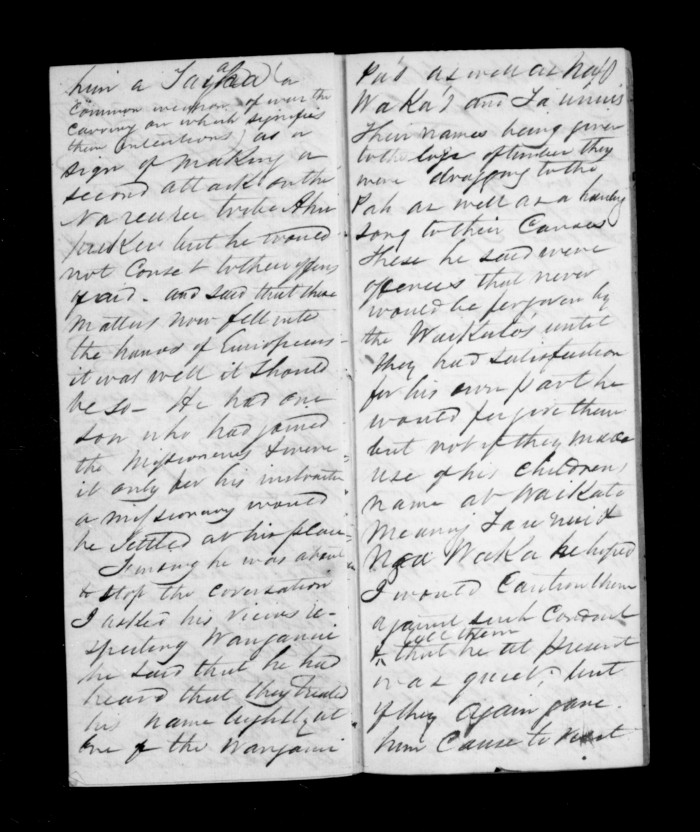 him a Taiaha (a
Common weapon of war the
Carrying on which signifies
their intentions) as a
sign of making a
second attack on the
tribe
but he would
not Conset to their
said - and said that these
matters now fell into
the hands of Europeans -
it was well it should
be so - He had one
son who had joined
the Missioneries & were
it only for his
a missionary would
be settled at his place
he was about
to stop the coversation
I asked his views re-
specting Wanganui
he said that he had
heard that they treated
his name lightly at
one of the Wanganui
Pa's as well as
Waka's and
their names being given
to the logs of timber they
were dragging to the
Pah as well as a hauling
song to their Canoes
these he said were
ofences that never
would be forgiven by
the Waikato's until
they had satisfaction
for his own part he
would forgive them
but not if they made
use of his Childrens
name at Waikato
Meaning &
Waka he hoped
I would Caution them
against such Conduct
& tell them that he at present
was quiet, but
if they again gave
him Cause to